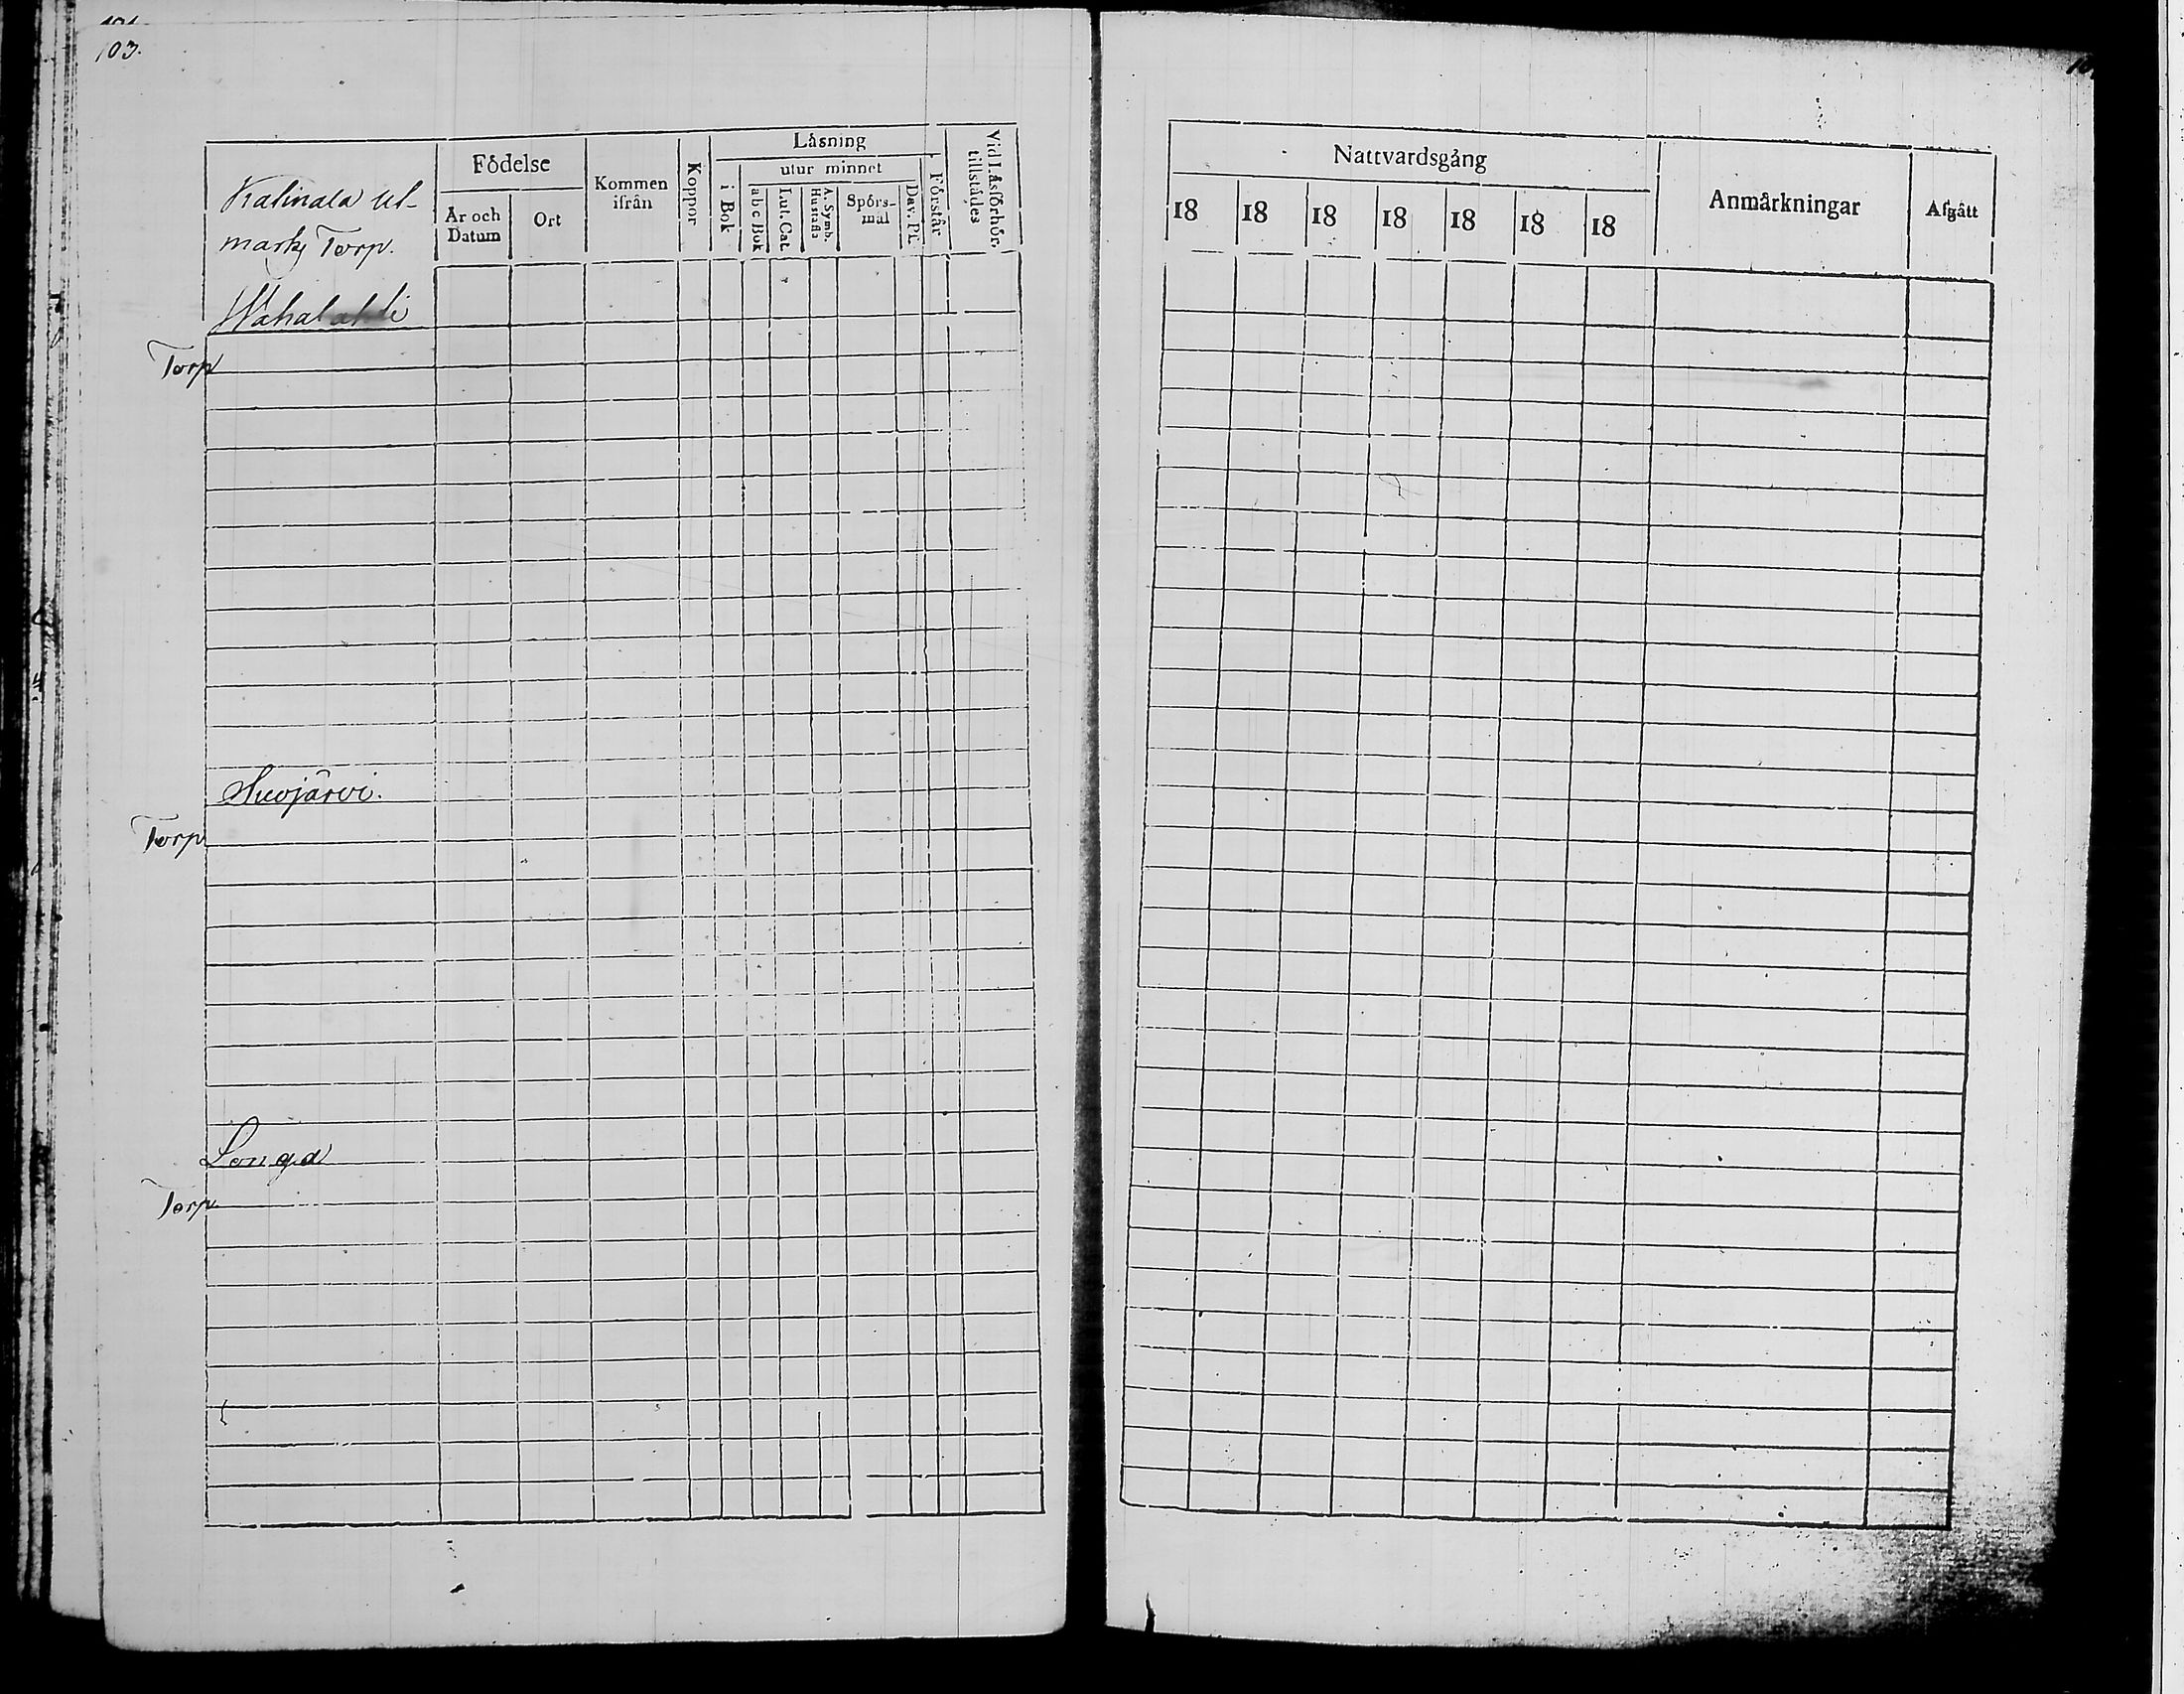 103.
Kalinala Ut-
marks Torp.
Födelse
År och Datum
Ort
Kommen ifrån
Koppor
Läsning
i Bok
utur minnet
abc Bok
Lut. Cat.
A. Symb. Hustafla
Spörs-mål
Dav. Ps.
Förstår
Vid Läsförhör. tillstädes
Nattvardsgång
18 18 18 18 18 18 18
Anmärkningar
Afgått
Wähalahti
Torp
Suojärvi.
Torp
Longa
Torp